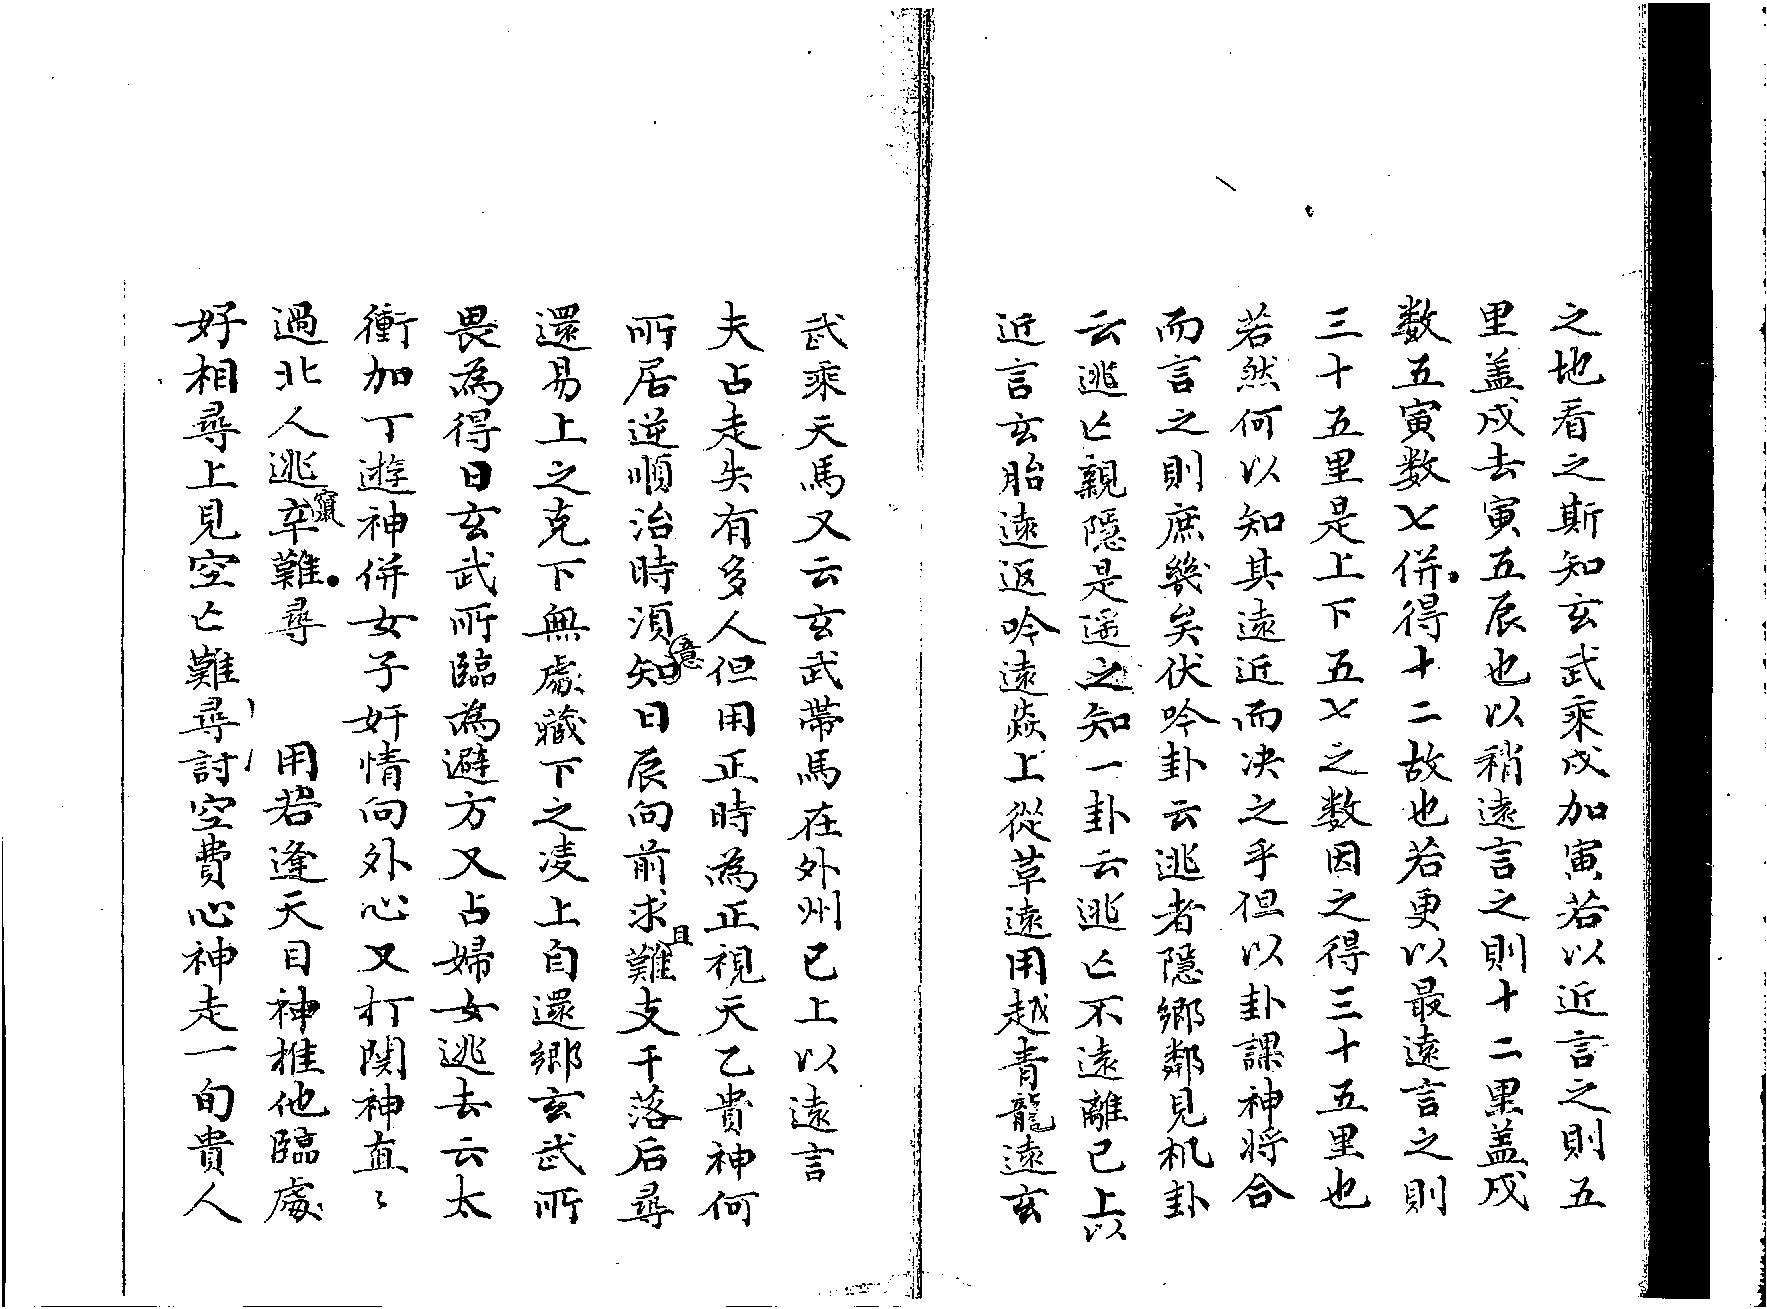 之地看之斯知玄武乘戌加寅若以近言之則五
里盖戌去寅五辰也以稍遠言之則十二里盖戌
数五寅数七併得十二故也若更以最遠言之則
三十五里是上下五七之数因之得三十五里也
若然何以知其遠近而决之乎但以卦課神將合
而言之則庶幾矣伏吟卦云逃者隱鄉鄰見机卦
云逃亡親隱是遥之知一卦云逃亡不遠離已上以
近言玄胎遠返吟遠焱上從草遠用越青龍遠玄
武乘天馬又云玄武帶馬在外州已上以遠言
夫占走失有多人但用正時為正視天乙貴神何
所居逆順治時須知日辰向前求難支干落后尋
還易上之克下無處藏下之凌上自還鄉玄武所
畏為得日玄武所臨為避方又占婦女逃去云太
衝加丁遊神併女子奸情向外心又打関神直〻
過北人逃竄卒難尋 用若逢天目神推他臨處
好相尋上見空亡難尋討空費心神走一旬貴人